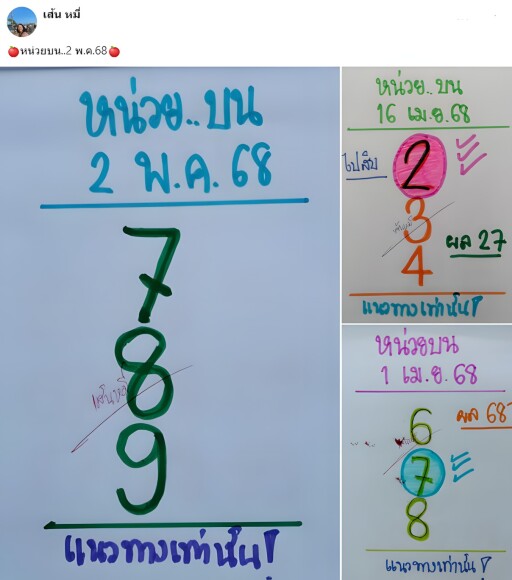 เส้น หมี่
🍎หน่วยบน..2 พ.ค.68🍎
หน่วย..บน
2 พ.ค. 68
7
8
เส้นหมี่
9
แนวทางเท่านั้น!
หน่วย..บน
16 เม.ย.68
ไปสิบ
2
3
ผล 27
4
แนวทางเท่านั้น!
หน่วยบน
1 เม.ย. 68
6
ผล 687
7
8
แนวทางเท่านั้น!